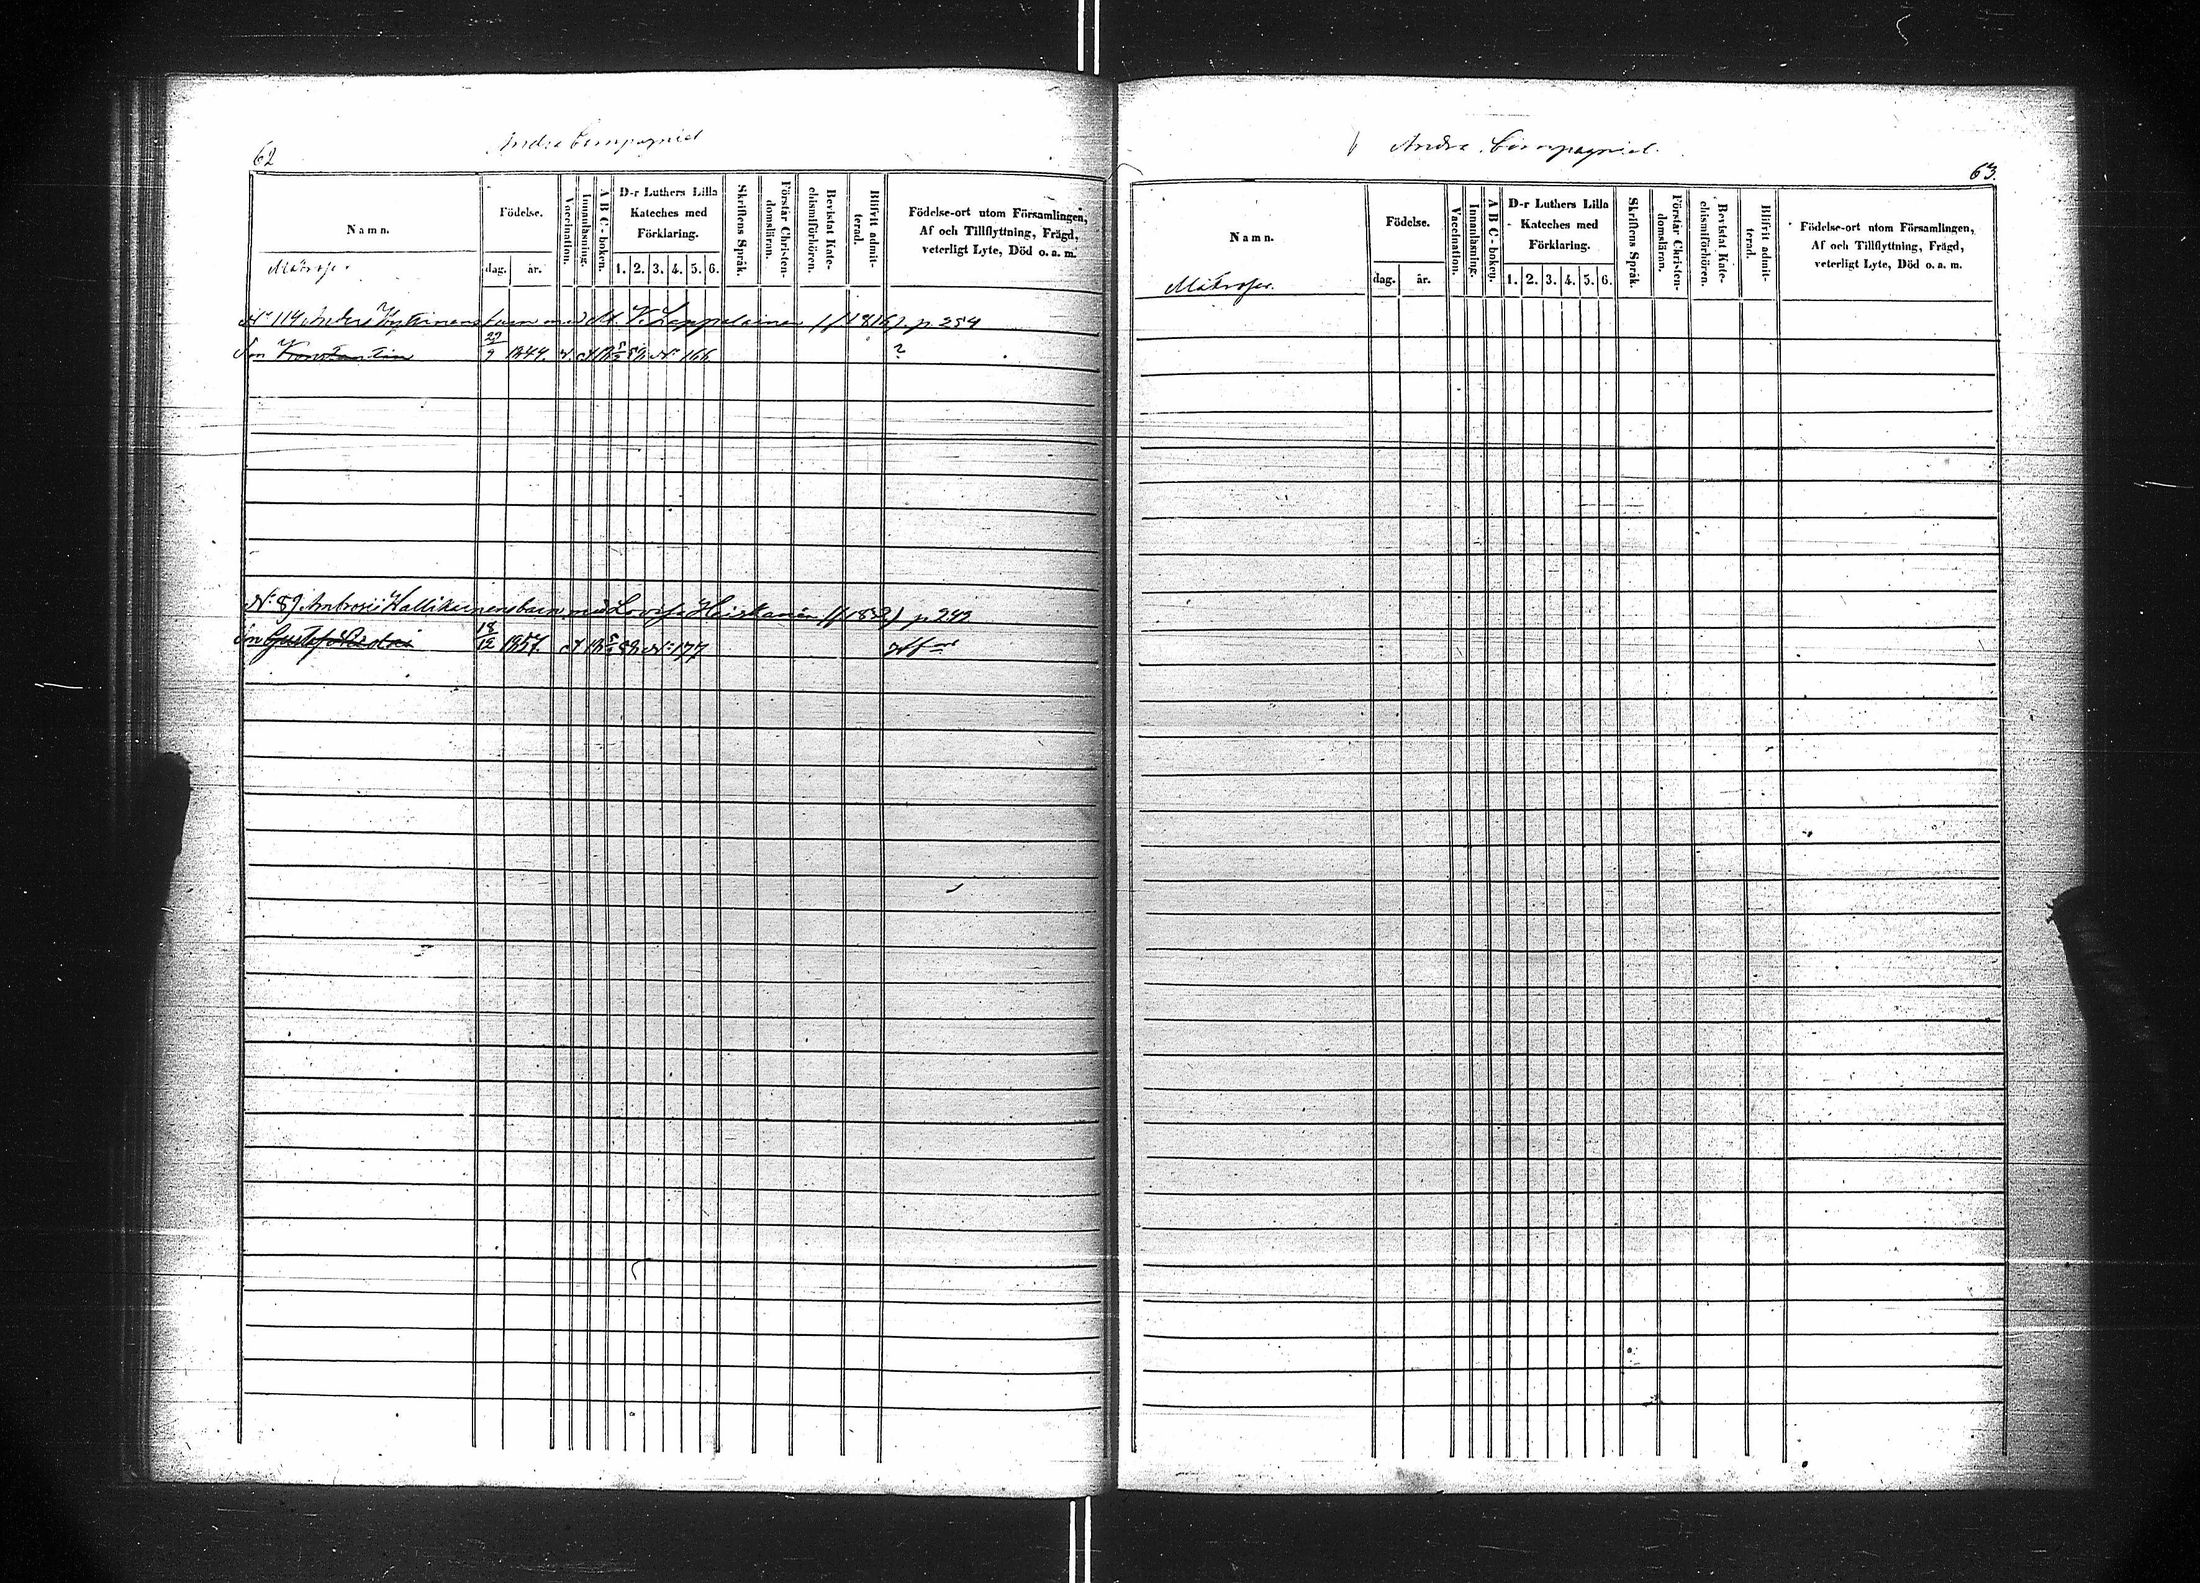 62
Andra Compagniet
Namn.
Födelse.
dag. år.
Vaccination.
Innanläsning.
A B C - boken.
D-r Luthers Lilla Kateches med Förklaring.
1. 2. 3. 4. 5. 6.
Skriftens Språk.
Förstår Christendomsläran.
Bevistat Katechismiförhören.
Blifvit admitterad.
Födelse-ort utom Församlingen,
Af och Tillflyttning, Frägd,
veterligt Lyte, Död o. a. m.
Matroser.
N:o 114 barn med M. K. Lappalainen (f 1816) p. 254
Son Konstantin 27/9 1844. N:o 166 ?
N:o 89 Ambrosii Hallikainens barn med Lovisa Heiskanen (f 1832) p 242
Son Gustaf 18/12 1857. N:o 177
Andra Compagniet.
63.
Namn.
Födelse.
dag. år.
Vaccination.
Innanläsning.
A B C - boken.
D-r Luthers Lilla Kateches med Förklaring.
1. 2. 3. 4. 5. 6.
Skriftens Språk.
Förstår Christendomsläran.
Bevistat Katechismiförhören.
Blifvit admitterad.
Födelse-ort utom Församlingen,
Af och Tillflyttning, Frägd,
veterligt Lyte, Död o. a. m.
Matroser.